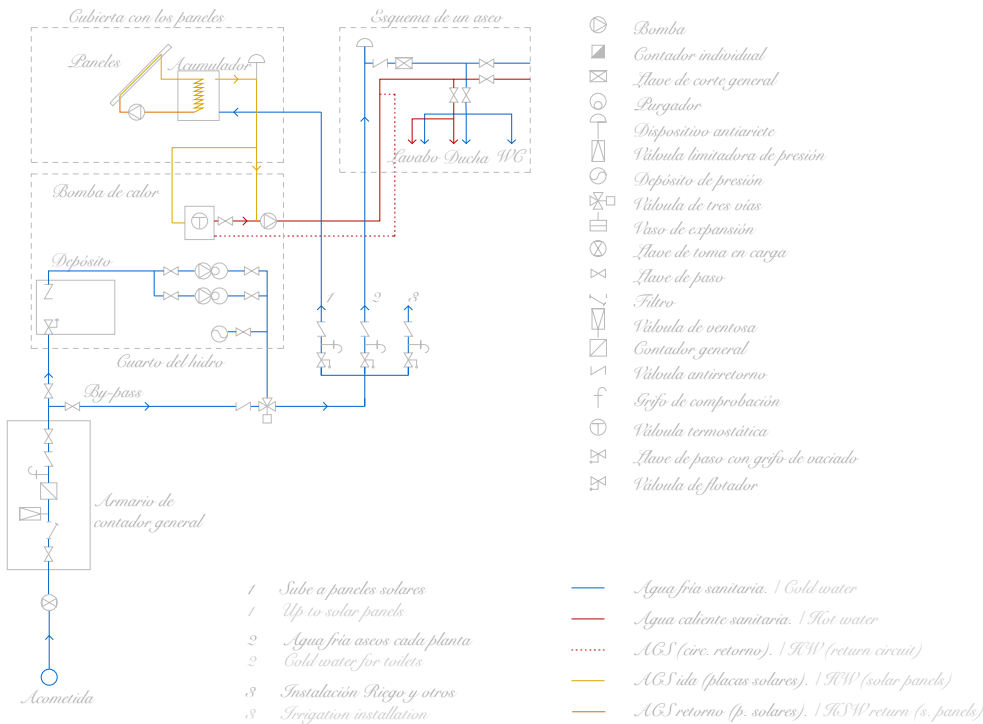 Cubierta con los paneles
Paneles
Acumulador
Bomba de calor
Depósito
Cuarto del hidro
By-pass
Armario de
contador general
Acometida
Esquema de un aseo
Lavabo Ducha WC
1 2 3
Bomba
Contador individual
Llave de corte general
Purgador
Dispositivo antiariete
Válvula limitadora de presión
Depósito de presión
Válvula de tres vías
Vaso de expansión
Llave de toma en carga
Llave de paso
Filtro
Válvula de ventosa
Contador general
Válvula antirretorno
Grifo de comprobación
Válvula termostática
Llave de paso con grifo de vaciado
Válvula de flotador
1 Sube a paneles solares
1 Up to solar panels
2 Agua fría aseos cada planta
2 Cold water for toilets
3 Instalación Riego y otros
3 Irrigation installation
Agua fría sanitaria. / Cold water
Agua caliente sanitaria. / Hot water
ACS (circ. retorno). / HW (return circuit)
ACS ida (placas solares). / HW (solar panels)
ACS retorno (p. solares). / HSW return (s. panels)